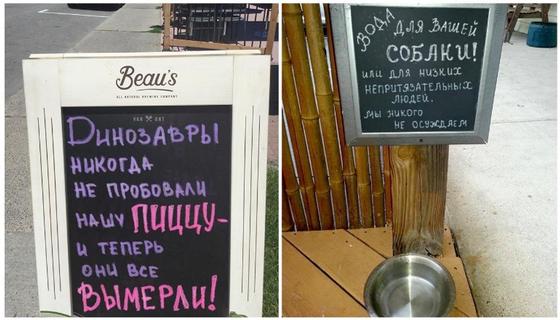 Beau's
ALL NATURAL BREWING COMPANY
ДИНОЗАВРЫ
НИКОГДА
НЕ ПРОБОВАЛИ
НАШУ ПИЦЦУ-
И ТЕПЕРЬ
ОНИ ВСЕ
ВЫМЕРЛИ!
ВОДА ДЛЯ ВАШЕЙ
СОБАКИ!
ИЛИ ДЛЯ НИЗКИХ
НЕПРИТЯЗАТЕЛЬНЫХ
ЛЮДЕЙ.
МЫ НИКОГО
НЕ ОСУЖДАЕМ